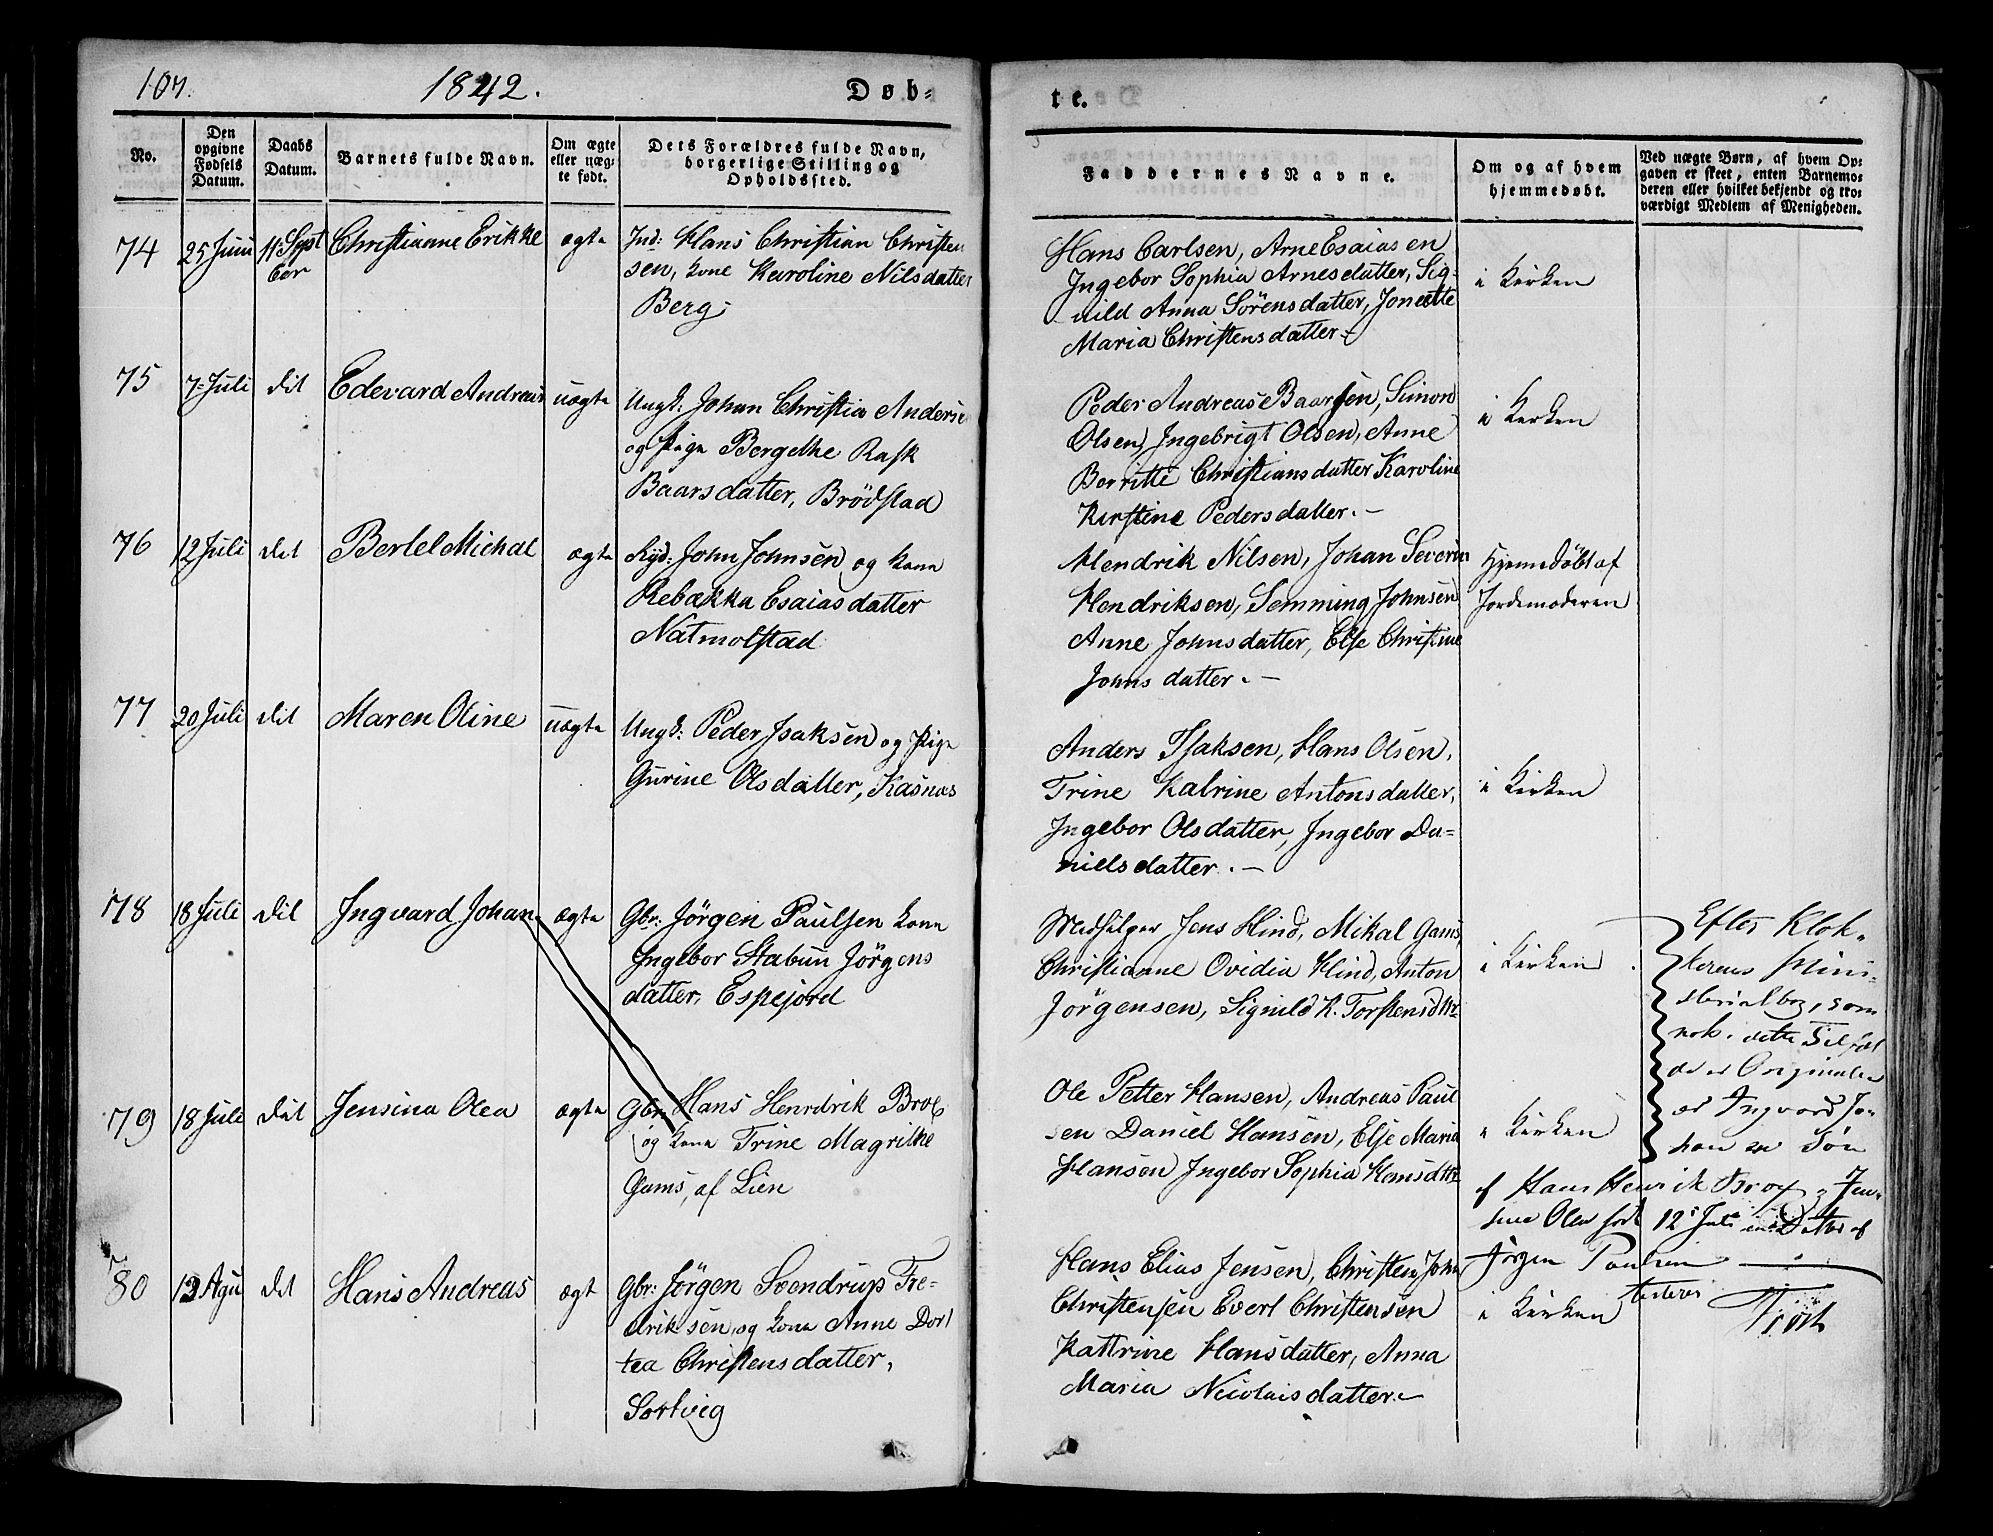 107.
1842.
Døb-
te.
No.
Den
opgivne
Fødsels
Datum.
Daabs
Datum.
Barnets fulde Navn.
Om ægte
eller uæg-
te født.
Dets Forældres fulde Navn,
borgerlige Stilling og
Opholdssted.
Faddernes Navne.
Om og af hvem
hjemmedøbt.
Ved uægte Børn, af hvem Op-
gaven er skeet, enten Barnemo-
deren eller hvilket bekjendt og tro-
værdigt Medlem af Menigheden.
74
25 Juni
11 Sept
ber
Christianne Erikke
ægte
Ind: Hans Christian Christen
sen, kone Karoline Nilsdatter
Berg
Hans Carlsen, Arne Esaiasen
Ingebor Sophia Arnesdatter, Sig-
nild Anna Sörensdatter, Jonette
Maria Christensdatter.
i Kirken
75
7 Juli
dit
Edevard Andreas
uægte
Ungk: Johan Christia Anderse
og Pige Bergethe Rask
Baarsdatter, Brödstad
Peder Andreas Baarsen, Simon
Olsen, Ingebrigt Olsen, Anne
Berritte Christiansdatter Karoline
Kirstine Pedersdatter. -
i Kirken
76
12 Juli
dit
Bertel Michal
ægte
Ryd: John Johnsen og kone
Rebakka Esaiasdatter
Natmolstad
Hendrik Nilsen, Johan Severin
Hendriksen, Semming Johnsen
Anne Johnsdatter, Else Christine
Johnsdatter. -
Hjemmedöbt af
Jordemoderen
77
20 Juli
dit
Maren Oline
uægte
Ungk: Peder Isaksen og Pige
Gurine Olsdatter, Kasnæs
Anders Isaksen, Hans Olsen,
Trine Katrine Antonsdatter,
Ingebor Olsdatter, Ingebor Da-
nielsdatter. -
i Kirken
78
18 Juli
dit
Ingvard Johan
ægte
Gbr: Jörgen Paulsen kone
Ingebor Stabun Jörgens
datter, Espejord
Jens Hind, Mikal Gams,
Christianne Ovidia Hind, Anton
Jörgensen, Signild K. Torstensdttr
i Kirken
Efter Klok-
kerens Mini-
sterialbog, som
nok i dette Tilfæl
de er Originalen
er Ingvard Jo-
han en Sön
af Hans Henrik Brox, Jen-
sine Olea født 12 Juli en Datter af
Jörgen Paulsen
79
18 Juli
dit
Jensina Olea
ægte
Gbr: Hans Henrdrik Brox
og kone Trine Magrithe
Gams, af Lien
Ole Petter Hansen, Andreas Paul
sen Daniel Hansen, Else Maria
Hansen Ingebor Sophia Hansdttr
i Kirken
80
13 Agu
dit
Hans Andreas
ægt
Gbr: Jörgen Svendrup Fre-
drik sen, og kone Anne Dort
tea Christensdatter,
Sortvig
Hans Elias Jensen, Christen John
Christensen Evert Christensen
Kattrine Hansdatter, Anna
Maria Nicolaisdatter.
i Kirken